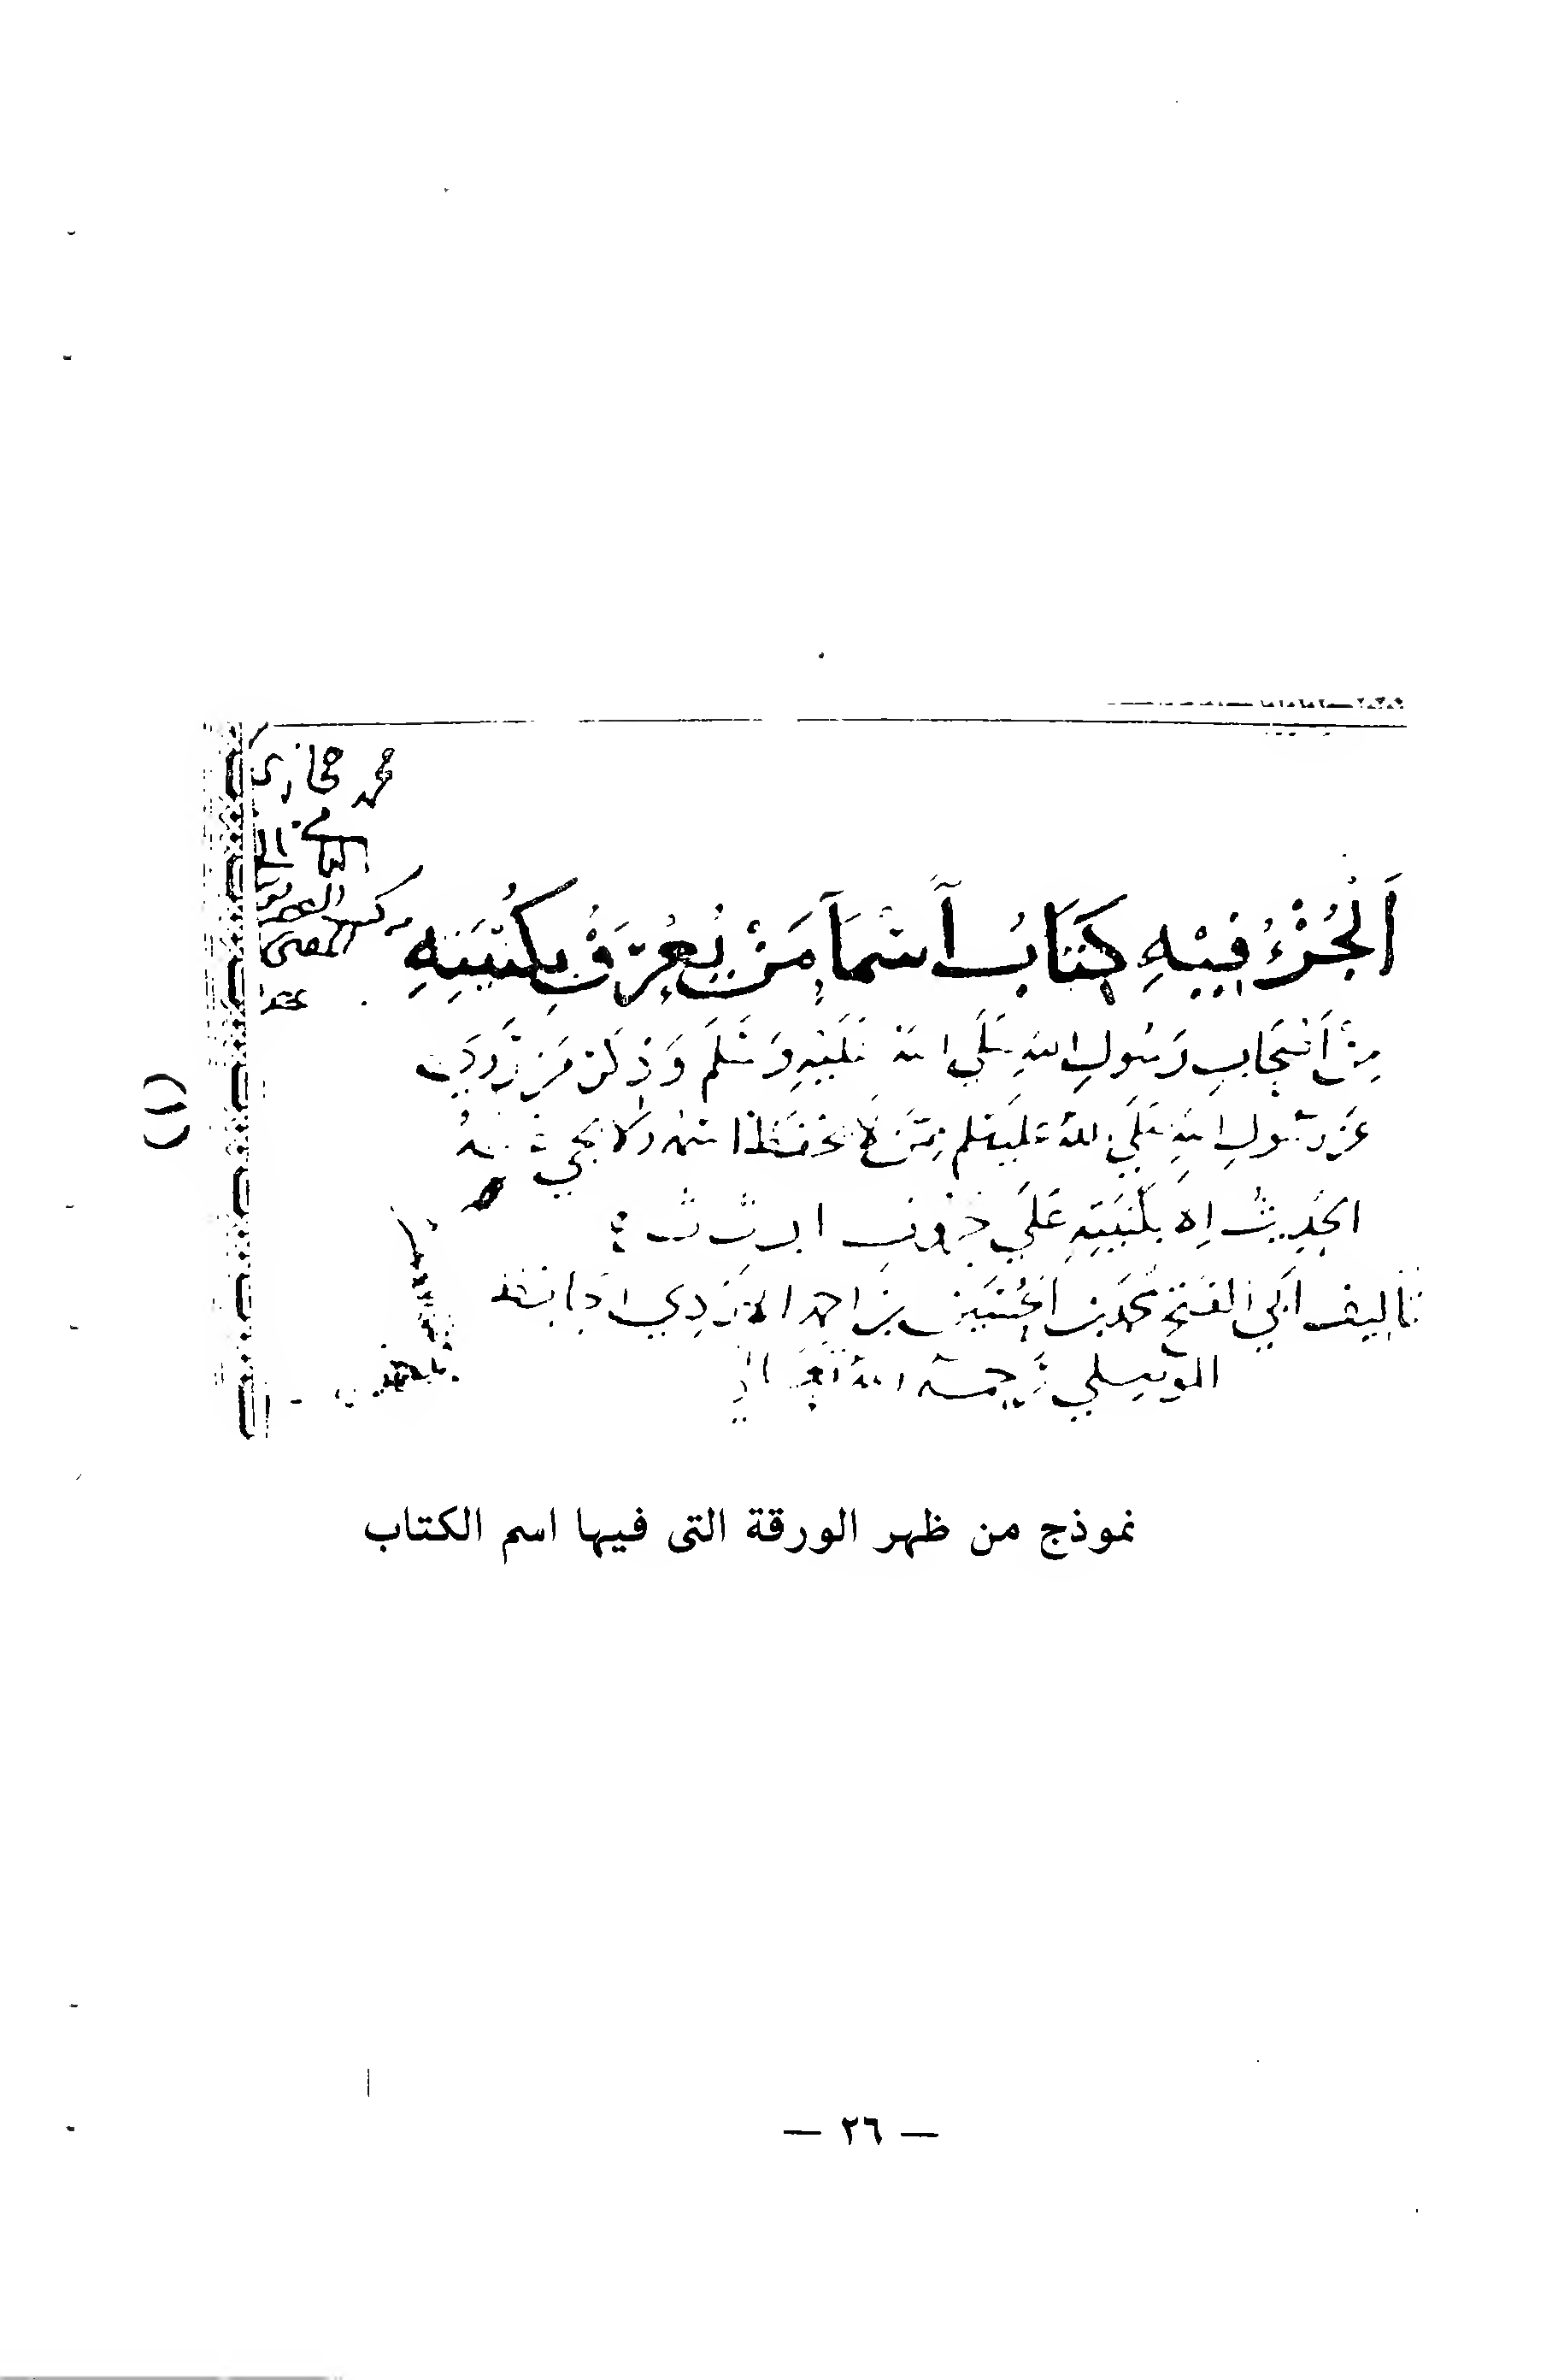 محمد حجازى
الكتانى
اَلْجُزْءُ فِيْهِ كِتَابُ أَسْمَآءِ مَنْ يُعْرَفُ بِكُنْيَتِهِ
مِنْ أَصْحَابِ رَسُولِ اللهِ صَلَّي الله عَلَيْهِ وَسَلَّمَ وَذِكْرُ مَنْ رَوَى
عَن رسُول اللهِ صَلَّي اللهُ عليه وسلم مِمَّنْ لا يحفظ اسمه ولا يجي
الحَدِيثُ إلا بكُنْيَتِهِ عَلَي حُرُوفِ ا ب ت ث
تأليف أبي الفَتْح محمد بن الحُسَيْن بن احمد الازدي الحافظ
الموصلي رَحِمَهُ اللهُ تَعَالَي
(١)
نموذج من ظهر الورقة التى فيها اسم الكتاب
— ٢٦ —